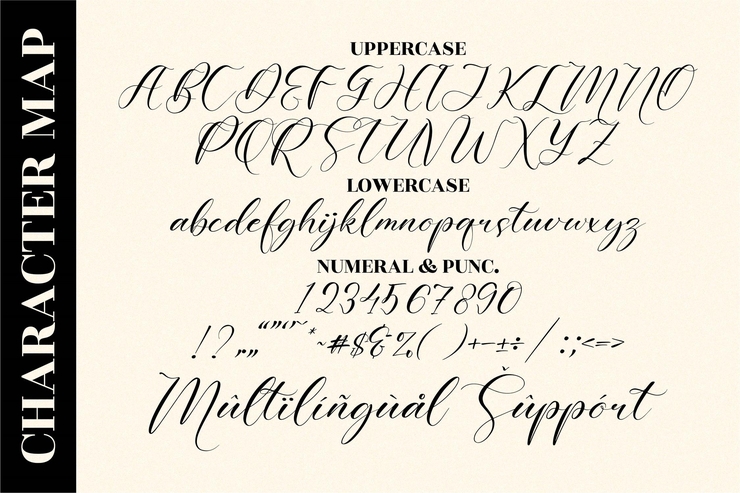 CHARACTER MAP
UPPERCASE
ABCDEFGHIJKLMNO
PQRSTUVWXYZ
LOWERCASE
abcdefghijklmnopqrstuvwxyz
NUMERAL & PUNC.
1234567890
!?,.„“”‘’~*~#$&%()+-±÷/:;<=>
Mûltïlíñgùål Šûppórt